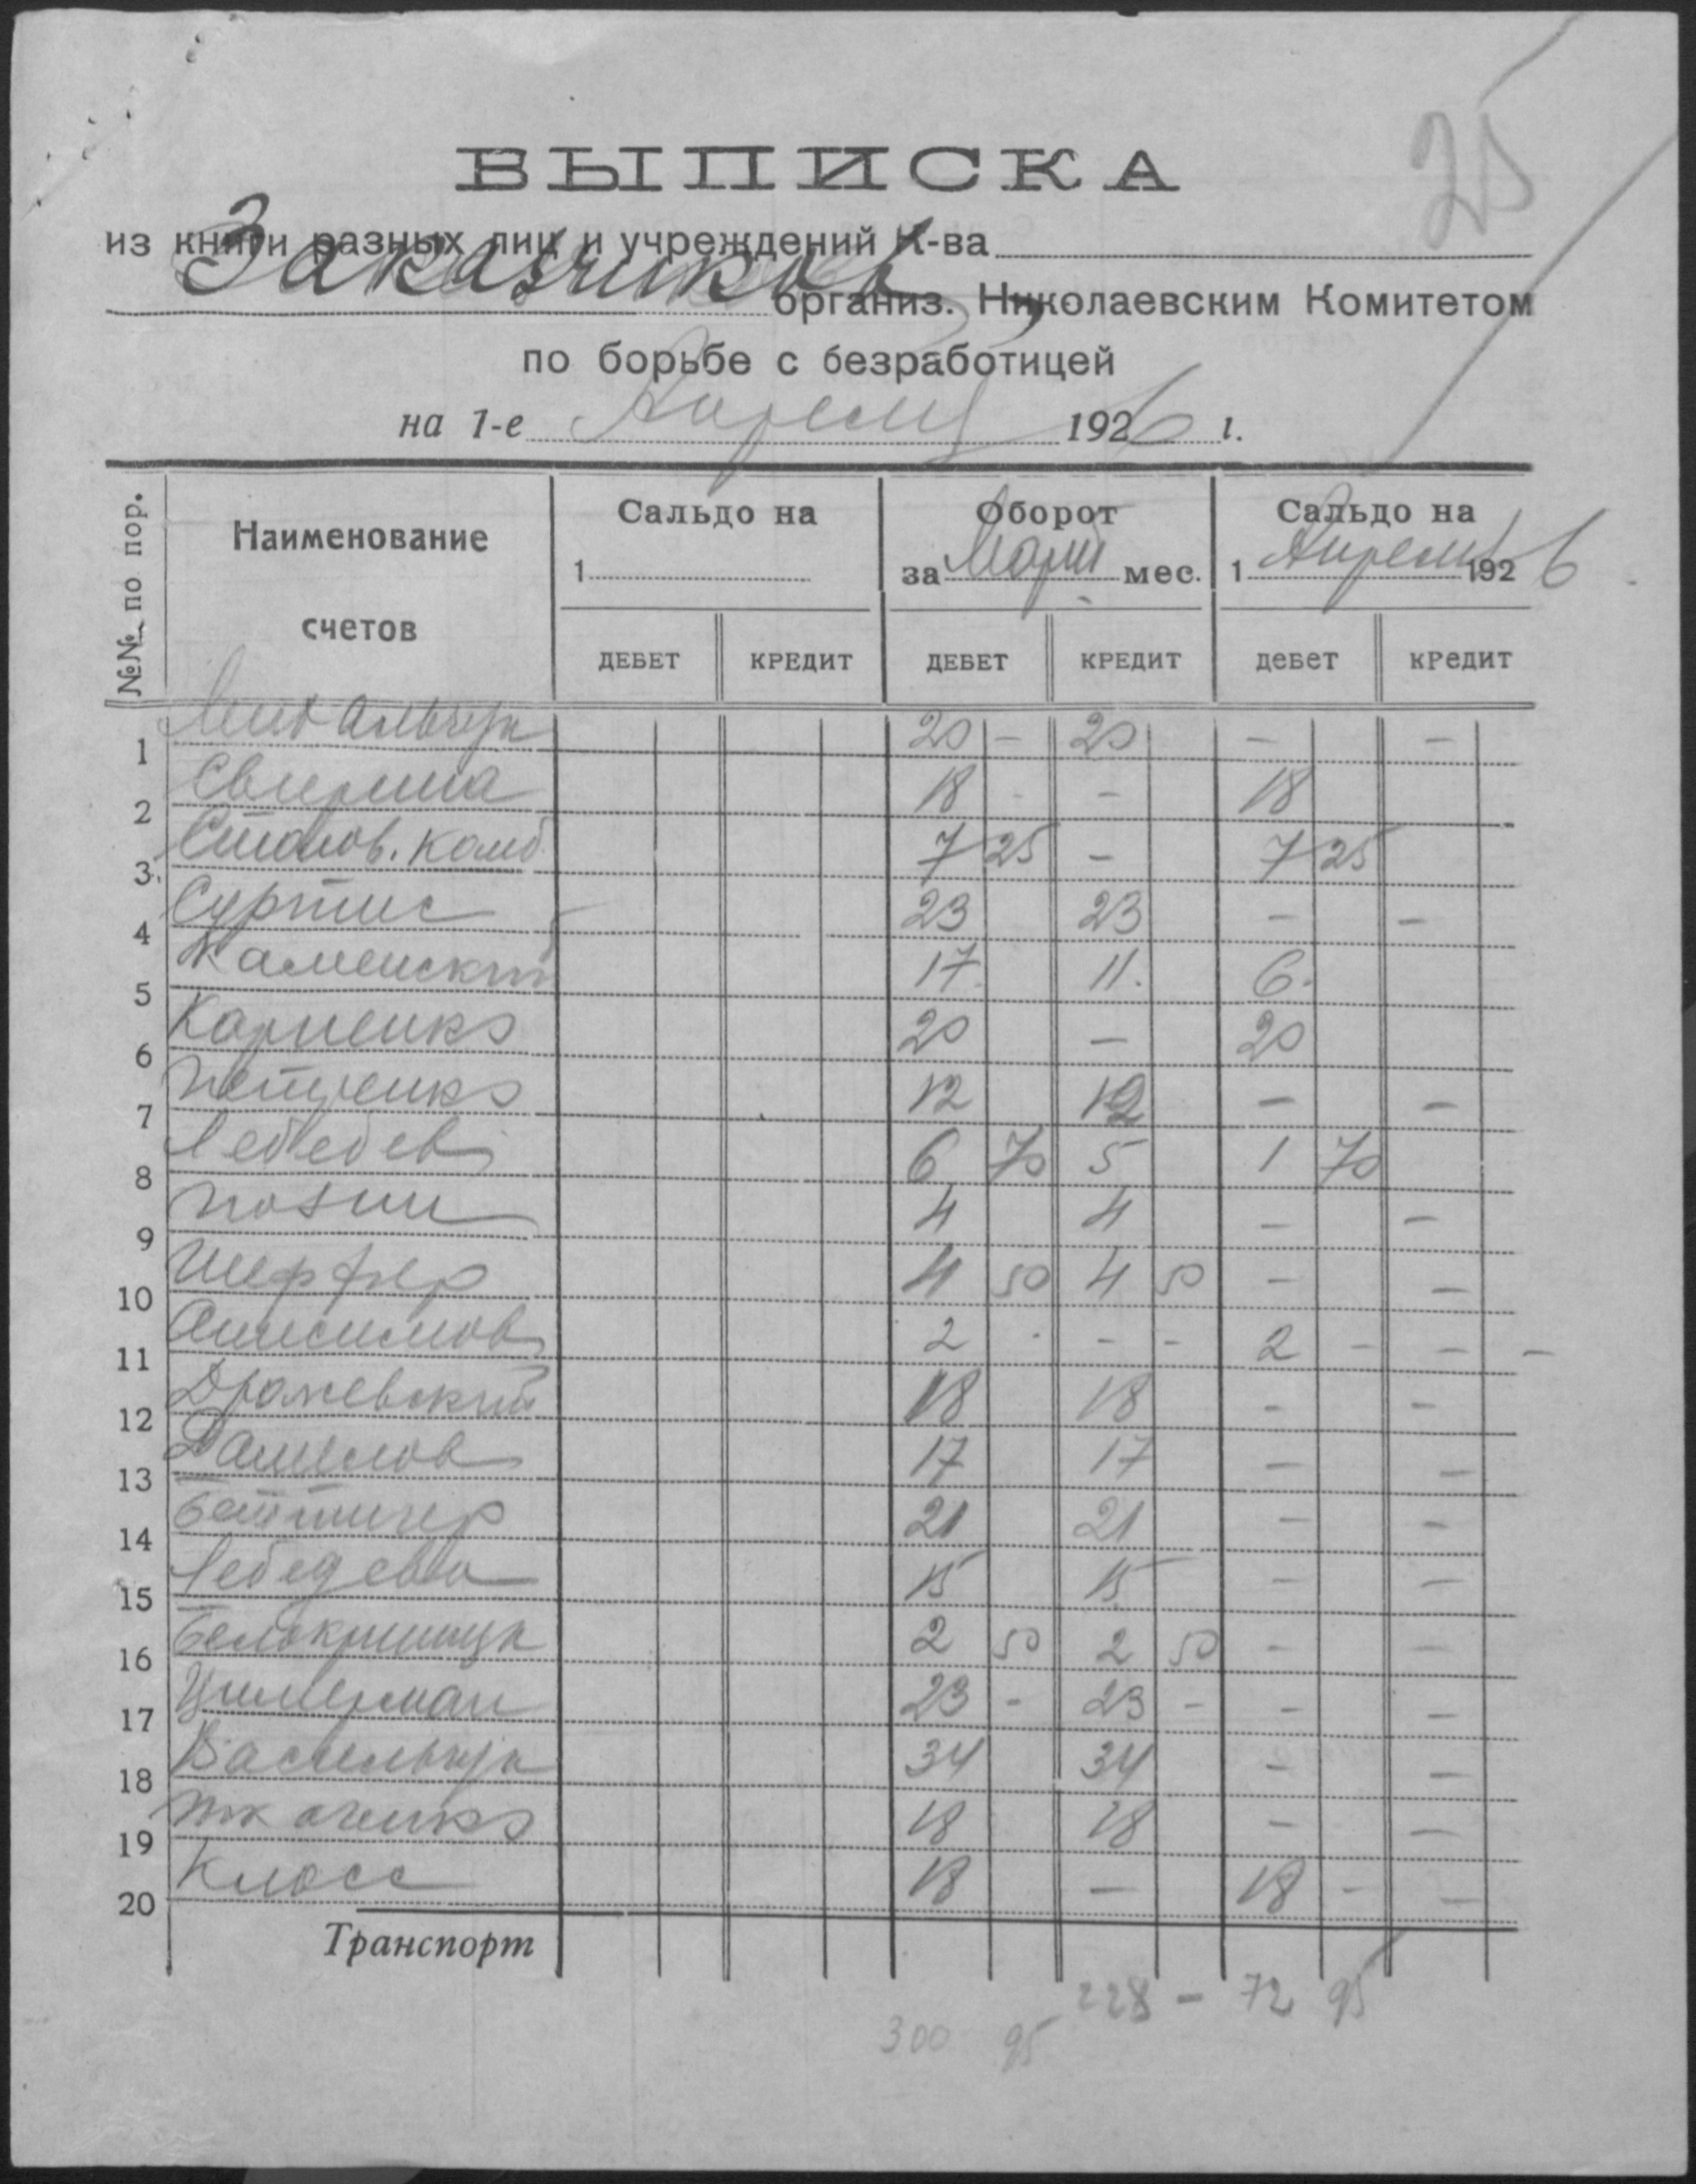 25
ВЫПИСКА
из книги разных лиц и учреждений К-ва
Заказчиков
организ. Николаевским Комитетом
по борьбе с безработицей
на 1-е Апреля 1926 г.
№№ по пор. Наименование счетов Сальдо на 1 Оборот за Март мес. Сальдо на 1 Апреля 1926
ДЕБЕТ КРЕДИТ ДЕБЕТ КРЕДИТ дебет кредит
1 Михальчук 20 – 20 – –
2 Свирина 18 - – 18
3. Столов. Комб 7 25 – 7 25
4 Суртис 23 23 – –
5 Каменский 17. 11. 6.
6 Карпенко 20 – 20
7 Петренко 12 12 – –
8 Лебедев 6 70 5 1 70
9 Позин 4 4 – –
10 Шеффер 4 50 4 50 – –
11 Анисимов 2 - – – 2 – – –
12 Дражевский 18 18 – –
13 Данилов 17 17 – –
14 Беттигер 21 21 – –
15 Лебедева 15 15 – –
16 2 50 2 50 – –
17 Цимерман 23 – 23 – – –
18 Васильчук 34 34 – –
19 Ткаченко 18 18 – –
20 Класс 18 – 18 – –
Транспорт
228 – 72 95
300 95